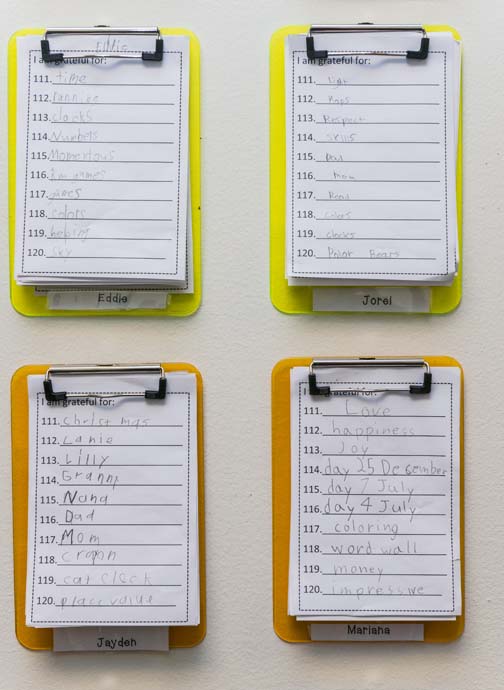 I am grateful for:
111. time
112.
113. clocks
114. Numbers
115. Momentous
116. games
117. games
118. colors
119. helping
120. sky
Eddie
I am grateful for:
111. light
112. Maps
113. Respect
114. skills
115. Dad
116. Mom
117. Read
118. colors
119. clocks
120. Polar Bears
Jorei
I am grateful for:
111. christmas
112. Lanie
113. Lilly
114. Granny
115. Nana
116. Dad
117. Mom
118. crayon
119. cat clock
120. place value
Jayden
I am grateful for:
111. Love
112. happiness
113. Joy
114. day 25 December
115. day 7 July
116. day 4 July
117. coloring
118. word wall
119. money
120. impressive
Mariana